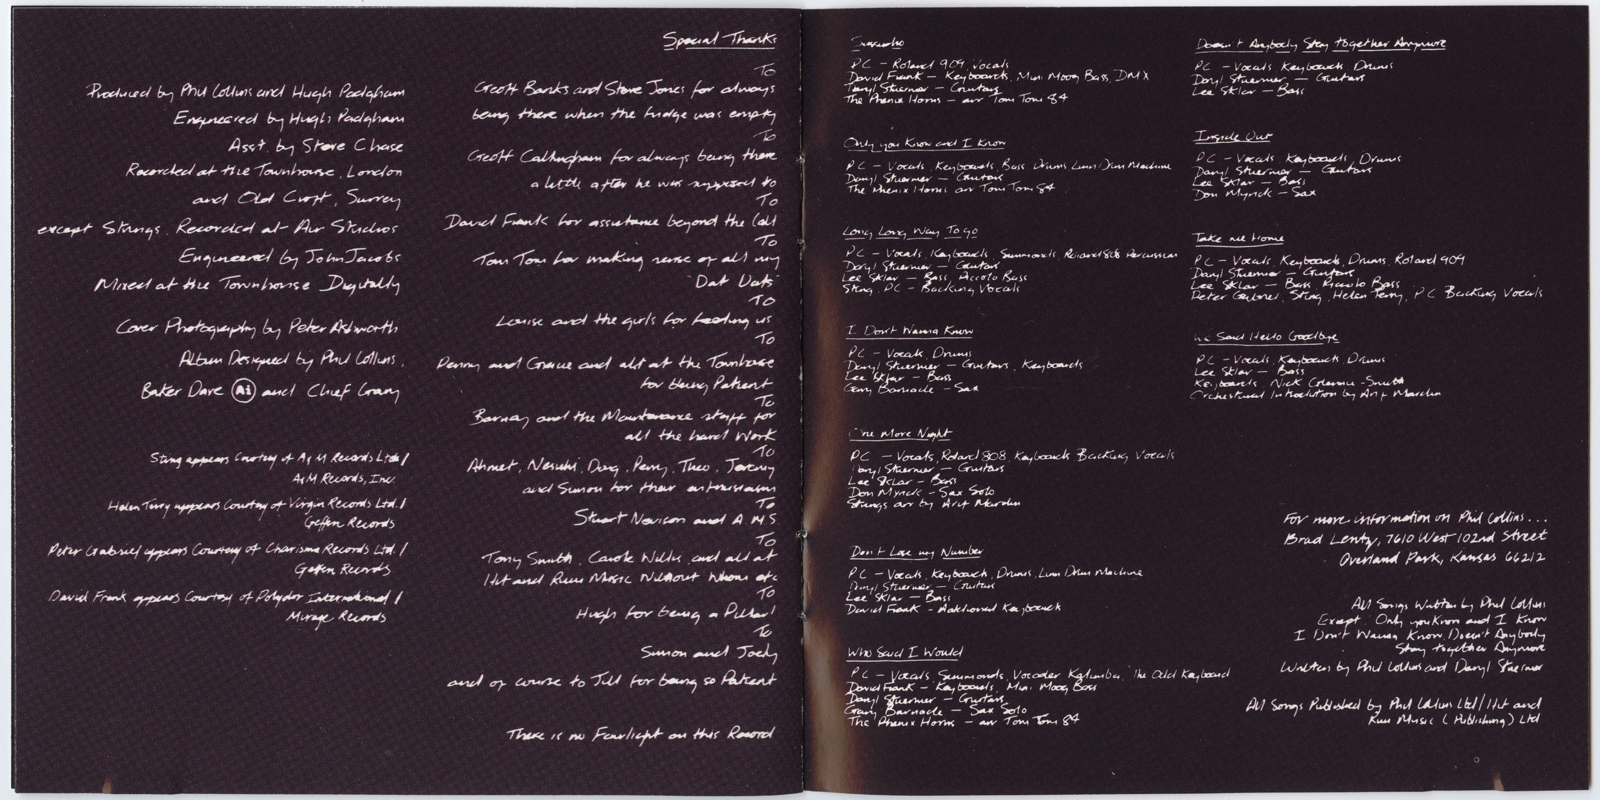 Produced by Phil Collins and Hugh Padgham
Engineered by Hugh Padgham
Asst. by Steve Chase
Recorded at the Townhouse, London
and Old Croft, Surrey
except Strings, Recorded at Air Studios
Engineered by John Jacobs
Mixed at the Townhouse Digitally
Cover Photography by Peter Ashworth
Album Designed by Phil Collins,
Baker Dave A1 and Chief Grany
Sting appears Courtesy of A&M Records Ltd/
A&M Records, Inc.
Helen Terry appears Courtesy of Virgin Records Ltd./
Geffen Records
Peter Gabriel appears Courtesy of Charisma Records Ltd./
Geffen Records
David Frank appears Courtesy of Polydor International/
Mirage Records
Special Thanks
To
Geoff Banks and Steve Jones for always
being there when the fudge was empty
To
Geoff Callingham for always being there
a little after he was supposed to
To
David Frank for assistance beyond the Call
To
Tom Tom for making sense of all my
'Dat Dats'
To
Louise and the girls for feeding us
To
Penny and Gracie and all at the Townhouse
for being Patient
To
Barney and the Maintenance staff for
all the hard Work
To
Ahmet, Nesuhi, Doug, Perry, Theo, Jeremy
and Simon for their enthusiasm
To
Stuart Nevison and A.M.S
To
Tony Smith, Carole Willis and all at
Hit and Run Music Without Whom etc
To
Hugh for being a Pillar!
To
Simon and Joely
and of course to Jill for being so Patient
There is no Fairlight on this Record
Sussudio
PC - Roland 909, Vocals
David Frank - Keyboards, Mini Moog Bass, DMX
Daryl Stuermer - Guitars
The Phenix Horns - arr Tom Tom 84
Only you Know and I Know
PC - Vocals, Keyboards, Bass, Drums, Linn Drum Machine
Daryl Stuermer - Guitars
The Phenix Horns arr Tom Tom 84
Long Long Way To go
PC - Vocals, Keyboards, Simmonds, Roland 808 Percussion
Daryl Stuermer - Guitars
Lee Sklar - Bass, Piccolo Bass
Sting, PC - Backing Vocals
I Don't Wanna Know
PC - Vocals, Drums
Daryl Stuermer - Guitars, Keyboards
Lee Sklar - Bass
Gary Barnacle - Sax
One More Night
PC - Vocals, Roland 808, Keyboards Backing Vocals
Daryl Stuermer - Guitars
Lee Sklar - Bass
Don Myrick - Sax Solo
Strings arr by Arif Mardin
Don't Lose my Number
PC - Vocals, Keyboards, Drums, Linn Drum Machine
Daryl Stuermer - Guitars
Lee Sklar - Bass
David Frank - Additional Keyboards
Who Said I Would
PC - Vocals, Simmonds, Vocoder Kalimba, The Odd Keyboard
David Frank - Keyboards, Mini Moog Bass
Daryl Stuermer - Guitars
Gary Barnacle - Sax Solo
The Phenix Horns - arr Tom Tom 84
Doesn't Anybody Stay together Anymore
PC - Vocals Keyboards Drums
Daryl Stuermer - Guitars
Lee Sklar - Bass
Inside Out
PC - Vocals, Keyboards, Drums
Daryl Stuermer - Guitars
Lee Sklar - Bass
Don Myrick - Sax
Take me Home
PC - Vocals, Keyboards, Drums, Roland 909
Daryl Stuermer - Guitars
Lee Sklar - Bass, Piccolo Bass
Peter Gabriel, Sting, Helen Terry, PC Backing Vocals
We Said Hello Goodbye
PC - Vocals, Keyboards, Drums
Lee Sklar - Bass
Keyboards, Nick Glennie-Smith
Orchestral Introduction by Arif Mardin
For more information on Phil Collins...
Brad Lentz, 7610 West 102nd Street
Overland Park, Kansas 66212
All Songs Written by Phil Collins
Except Only you Know and I Know
I Don't Wanna Know, Doesn't Anybody
Stay together Anymore
Written by Phil Collins and Daryl Stuermer
All Songs Published by Phil Collins Ltd/Hit and
Run Music (Publishing) Ltd